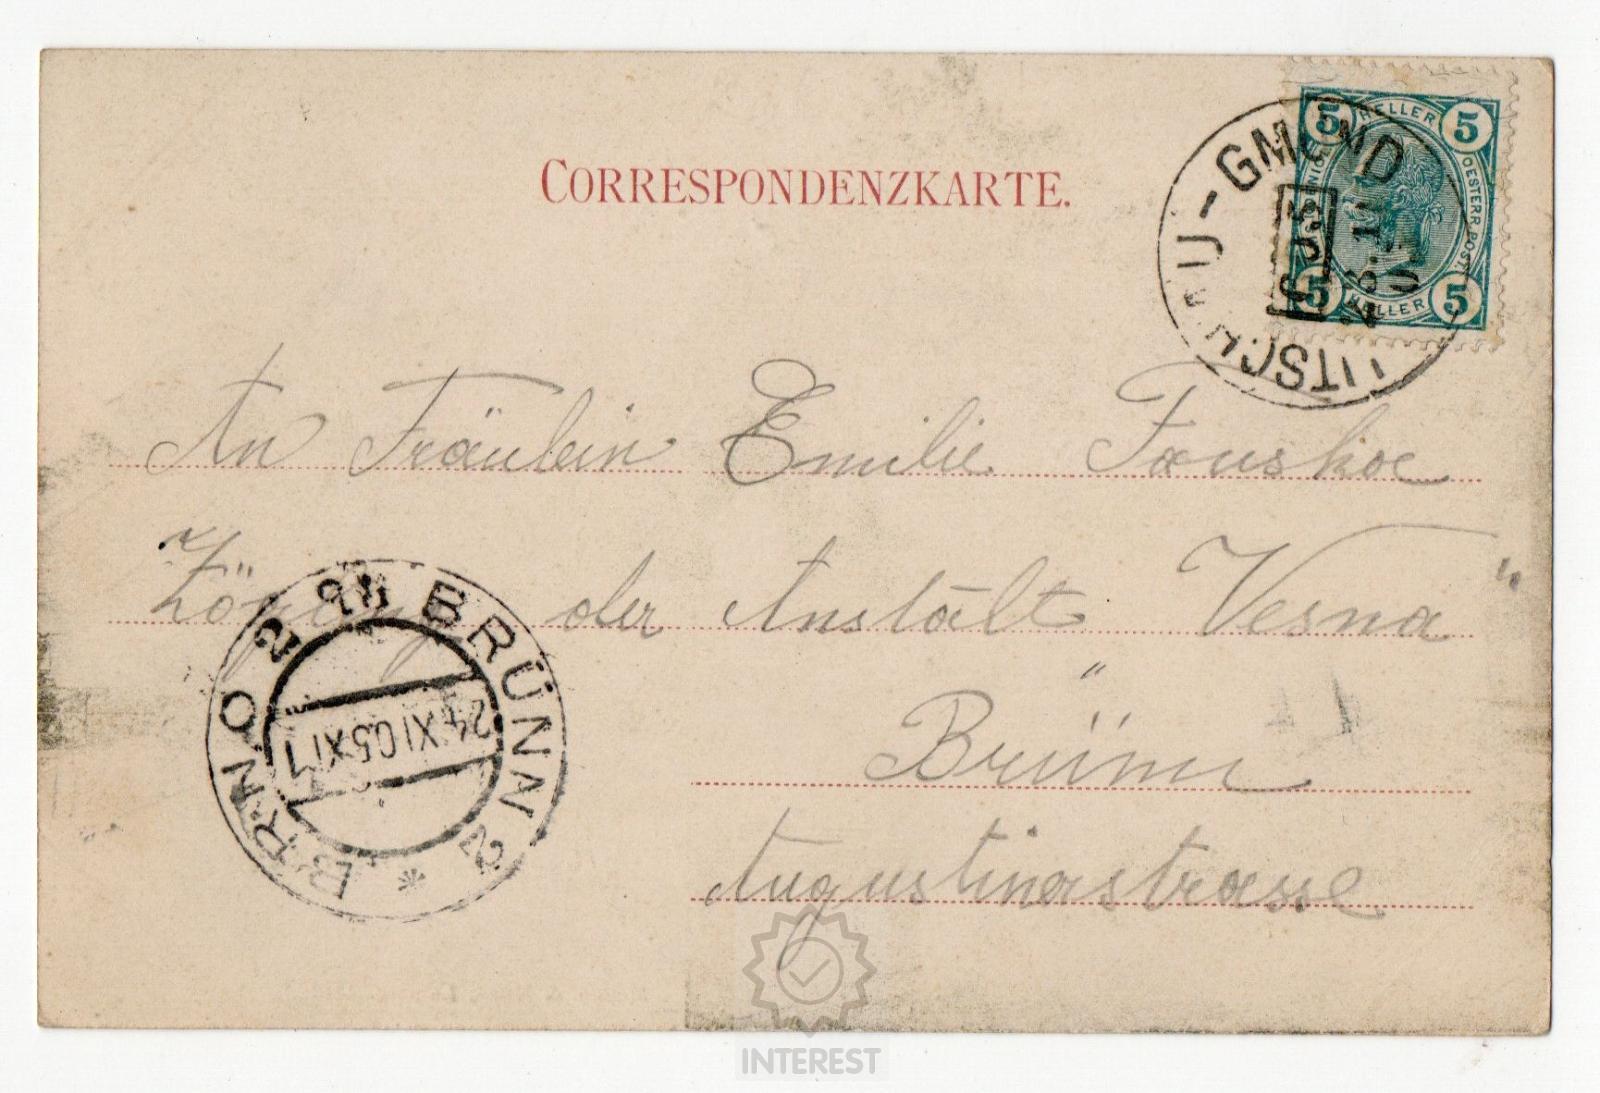 CORRESPONDENZKARTE.
5 HELLER 5
OESTERR. POST
5 HELLER 5
GMÜND
An Fräulein Emilie
Zögling der Anstalt „Vesna“
Brünn
Augustinerstrasse
BRÜNN 2 * BRNO 2
24 XI 05 XI
INTEREST